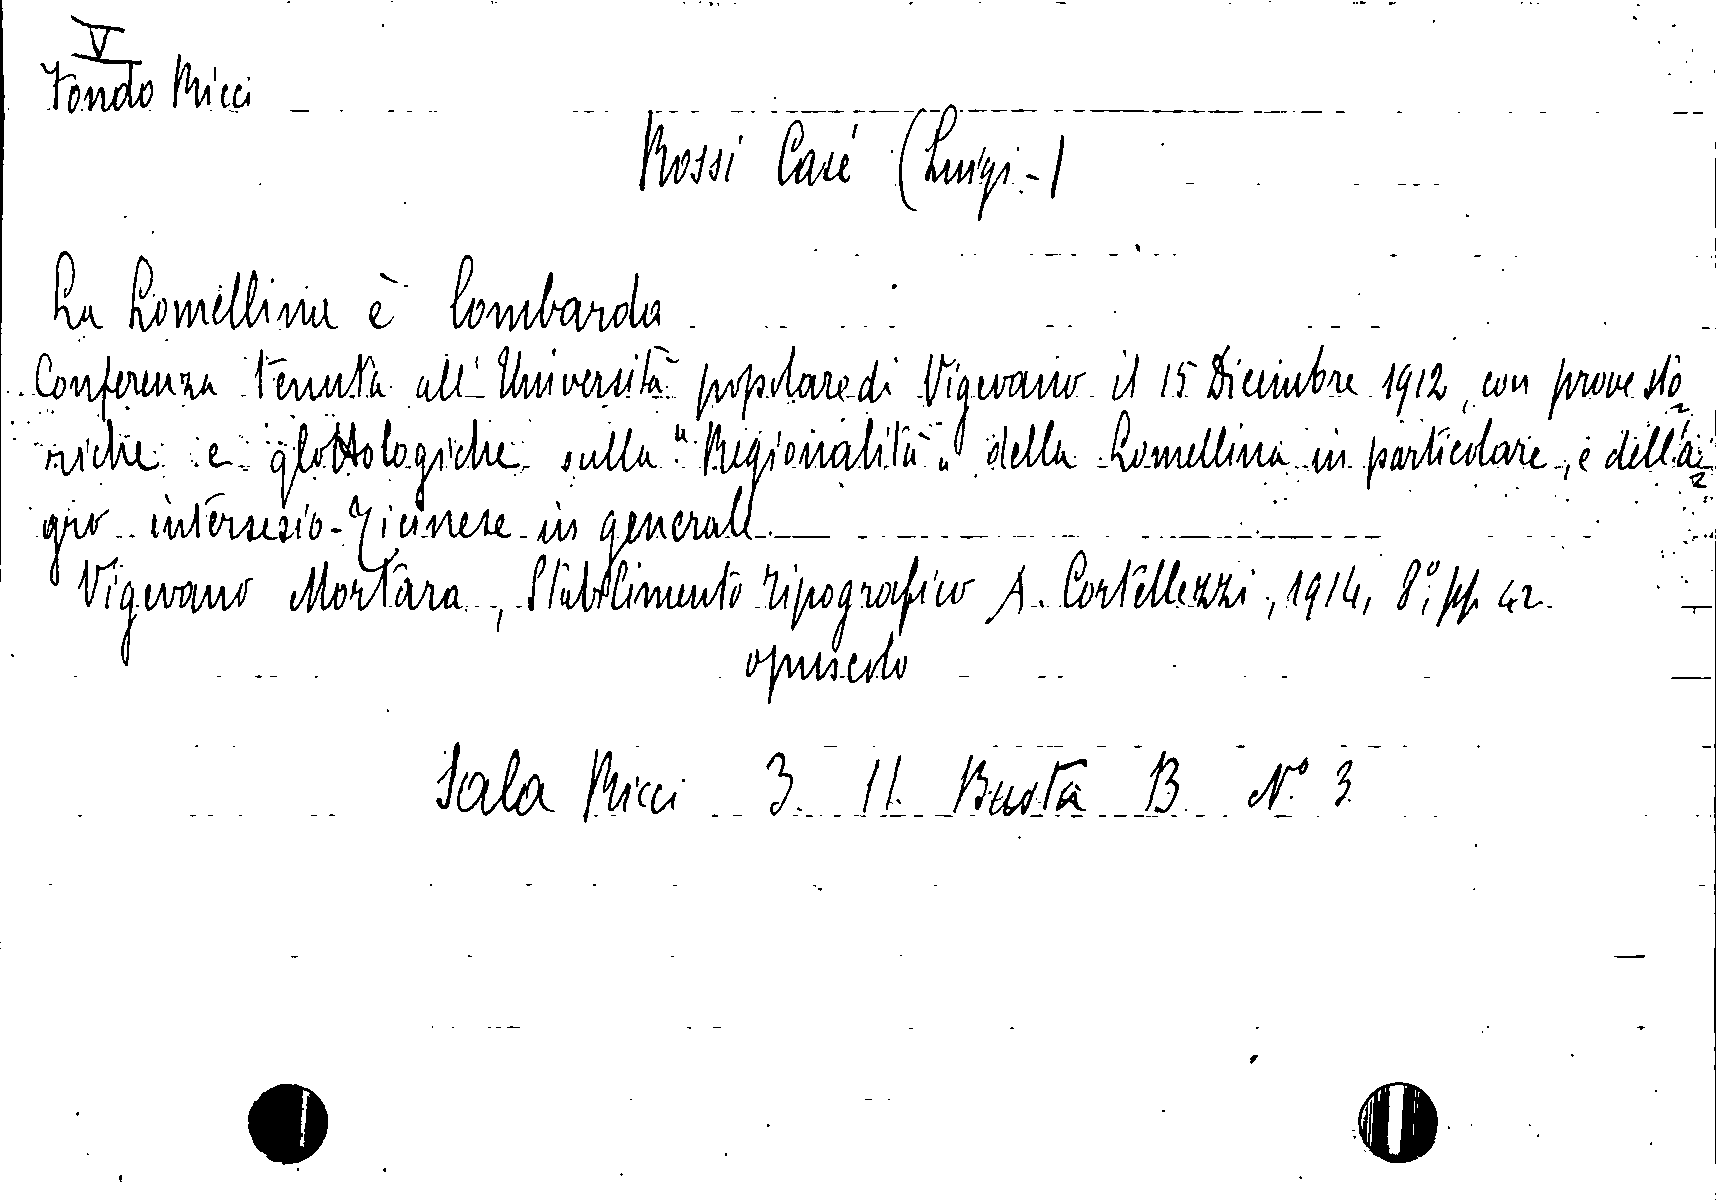 V
Fondo Ricci
Rossi Casé (Luigi-)
La Lomellina è lombarda
Conferenza tenuta all'Università popolare di Vigevano il 15 Dicembre 1912, con prove sto
riche e glottologiche sulla "Regionalità„ della Lomellina in particolare, e dell'a
gro intersesio-Ticinese in generale
Vigevano Mortara, Stabilimento Tipografico A. Cortellezzi, 1914, 8°, pp 42.
opuscolo
Sala Ricci 3. 11. Busta B N.° 3